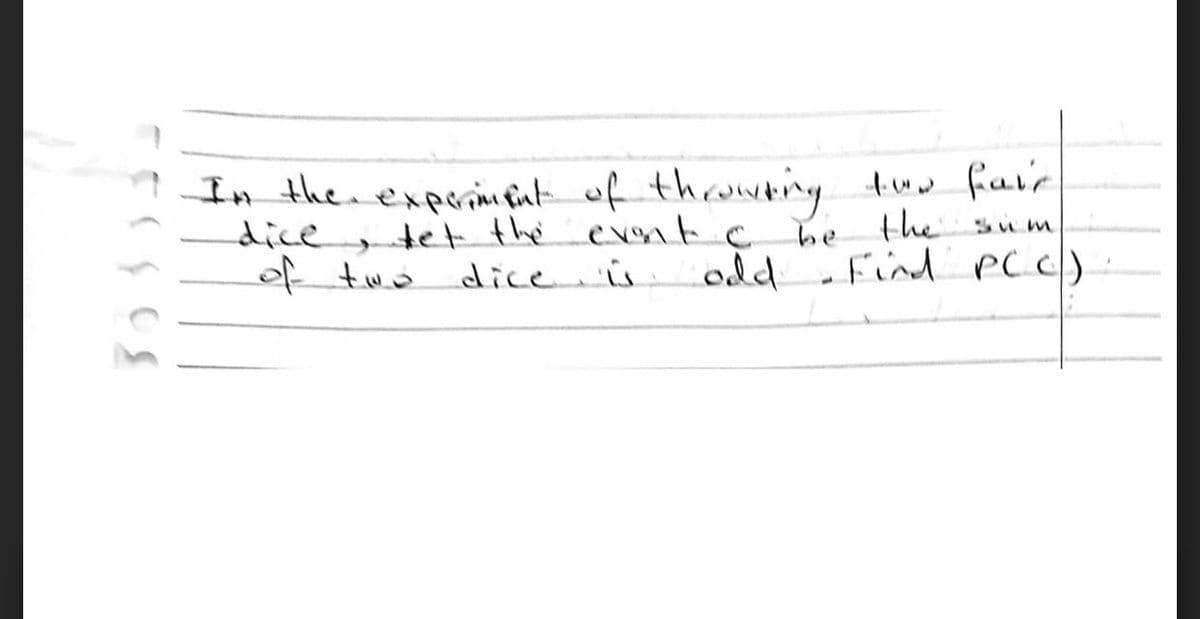 In the experiment of throwting two fair
dice, let the event c be the sum
of two dice is odd. Find P(c)